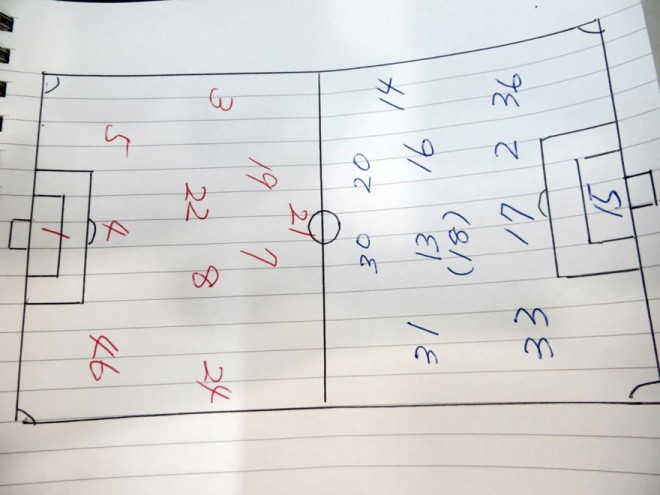 3
5
19
22
21
1
4
7
8
46
24
14
36
20
16
2
15
30
13
(18)
17
31
33